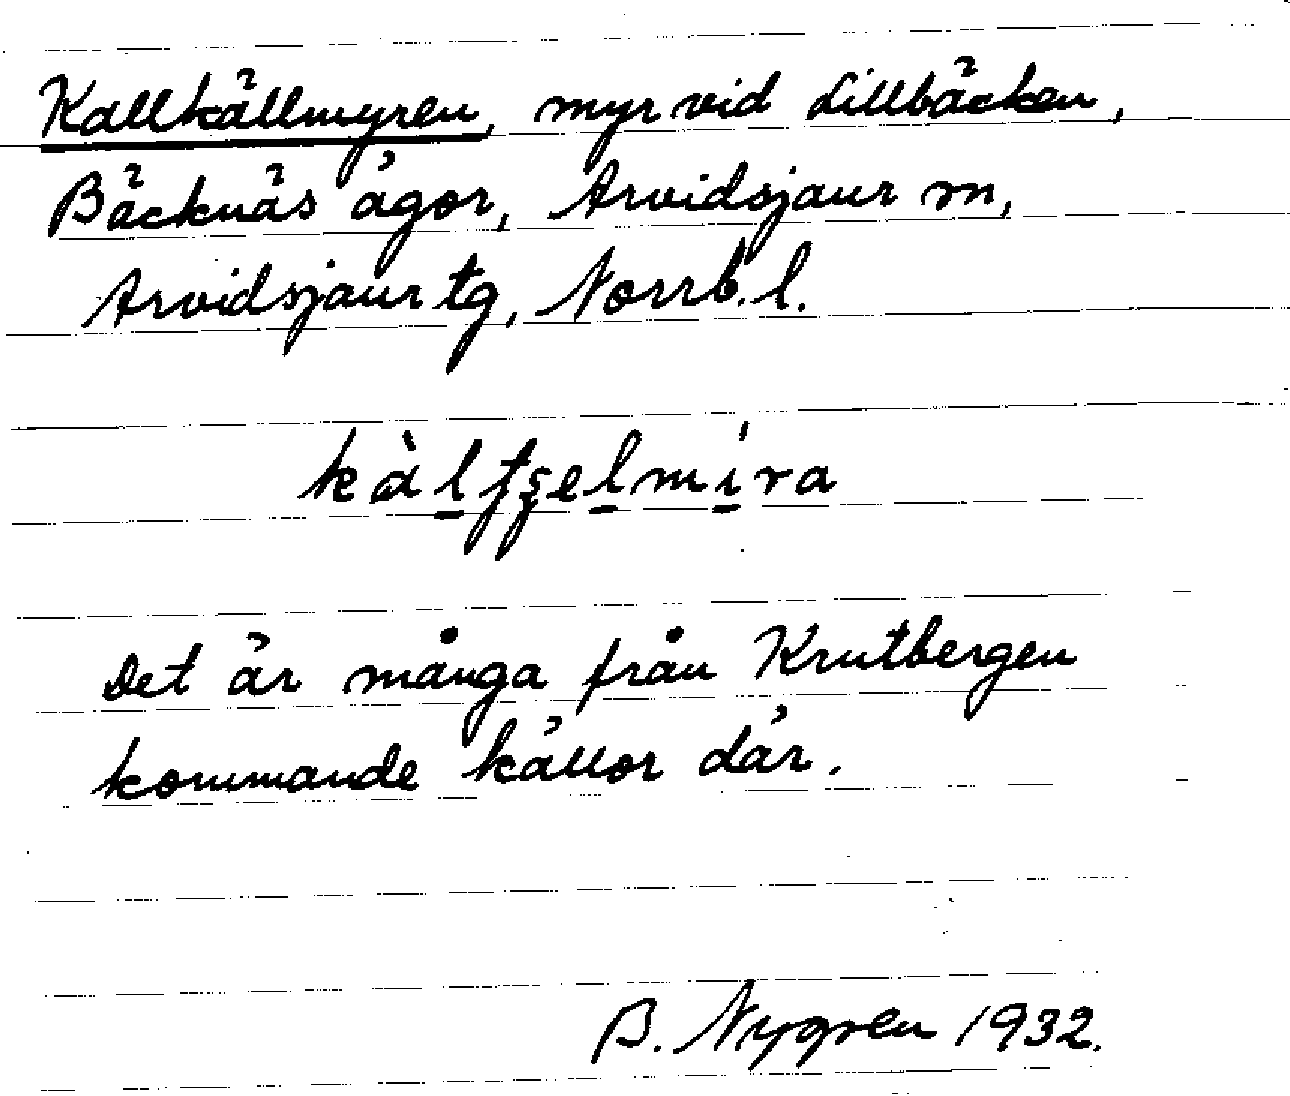 Kallkällmyren, myr vid Lillbäcken,
Bäcknäs ägor, Arvidsjaur sn,
Arvidsjaur tg, Norrb. l.
kàltʂelmíra
Det är många från Krutbergen
kommande källor där.
B. Nygren 1932.